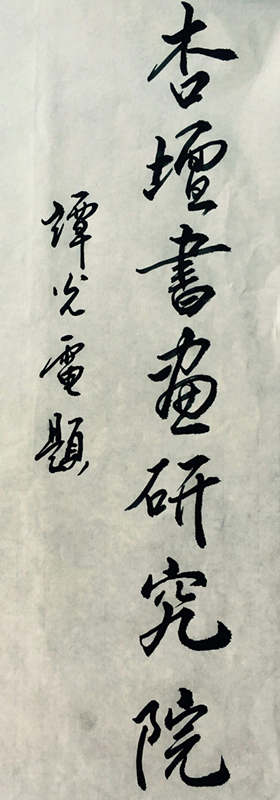 杏壇書畫研究院
譚光電題